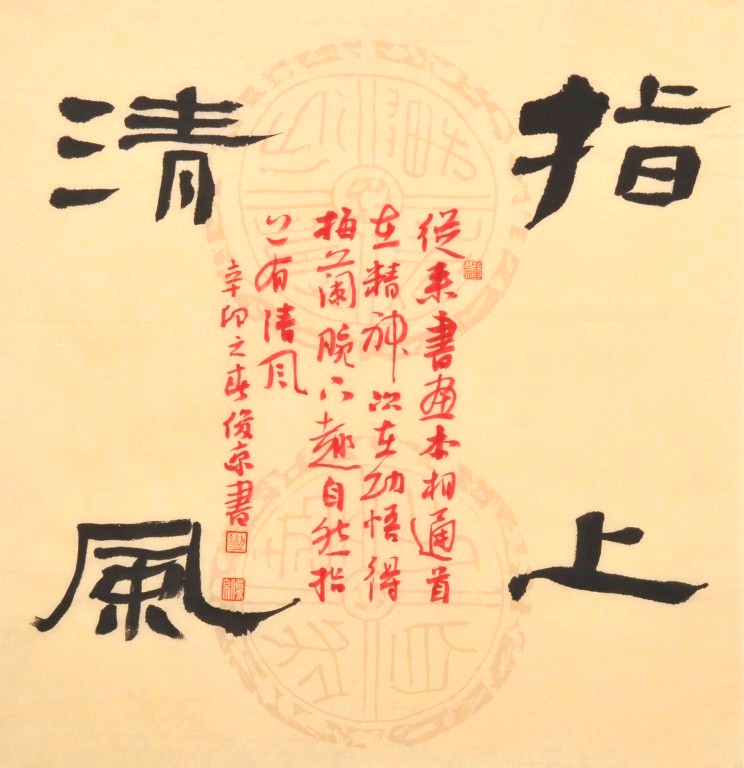 指上
清風
從来書畫本相通首
在精神次在功悟得
梅蘭腕下趣自然指
上有清風
辛卯之春俊京書